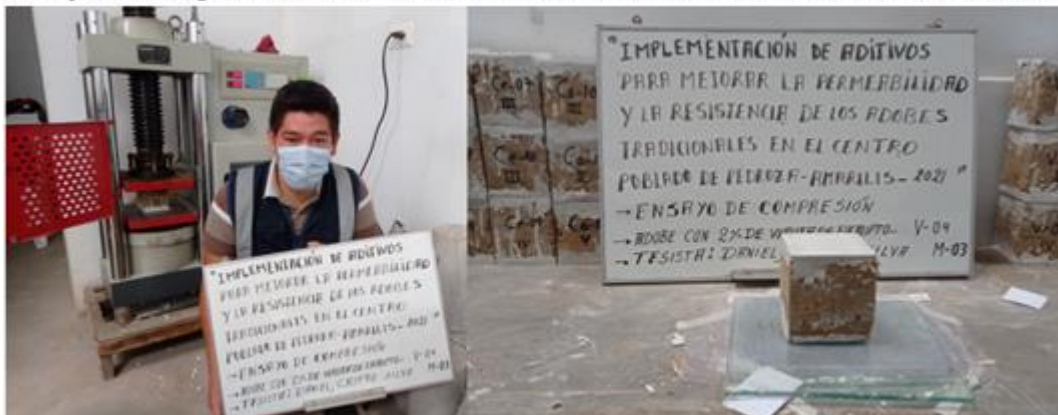 "IMPLEMENTACIÓN DE ADITIVOS
PARA MEJORAR LA PERMEABILIDAD
Y LA RESISTENCIA DE LOS ADOBES
TRADICIONALES EN EL CENTRO
POBLADO DE PEDROZA-AMARILIS-2021"
→ ENSAYO DE COMPRESIÓN
→ ADOBE CON 2% DE V-04
→ TESISTA: DANIEL, SILVA M-03
"IMPLEMENTACIÓN DE ADITIVOS
PARA MEJORAR LA PERMEABILIDAD
Y LA RESISTENCIA DE LOS ADOBES
TRADICIONALES EN EL CENTRO
POBLADO DE PEDROZA-AMARILIS-2021"
→ ENSAYO DE COMPRESIÓN
→ ADOBE CON 2% DE V-04
→ TESISTA: DANIEL, ILVA M-03